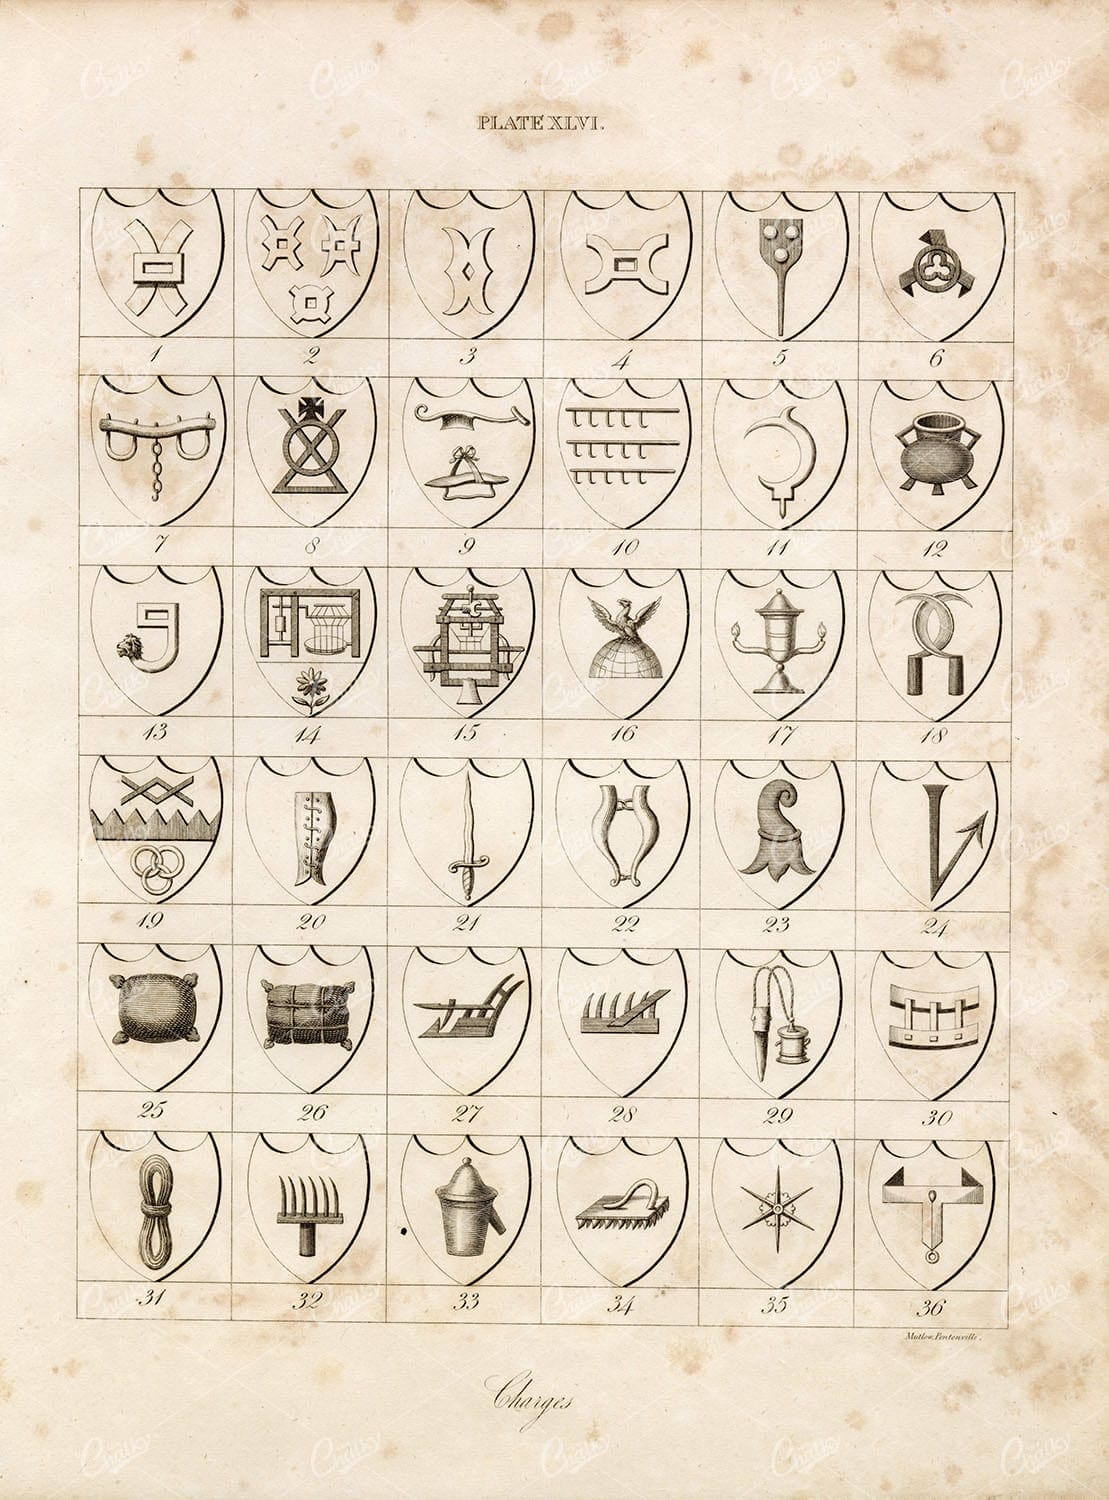 PLATE XLVI.
1 2 3 4 5 6
7 8 9 10 11 12
13 14 15 16 17 18
19 20 21 22 23 24
25 26 27 28 29 30
31 32 33 34 35 36
Mutlow, Pentonville.
Charges